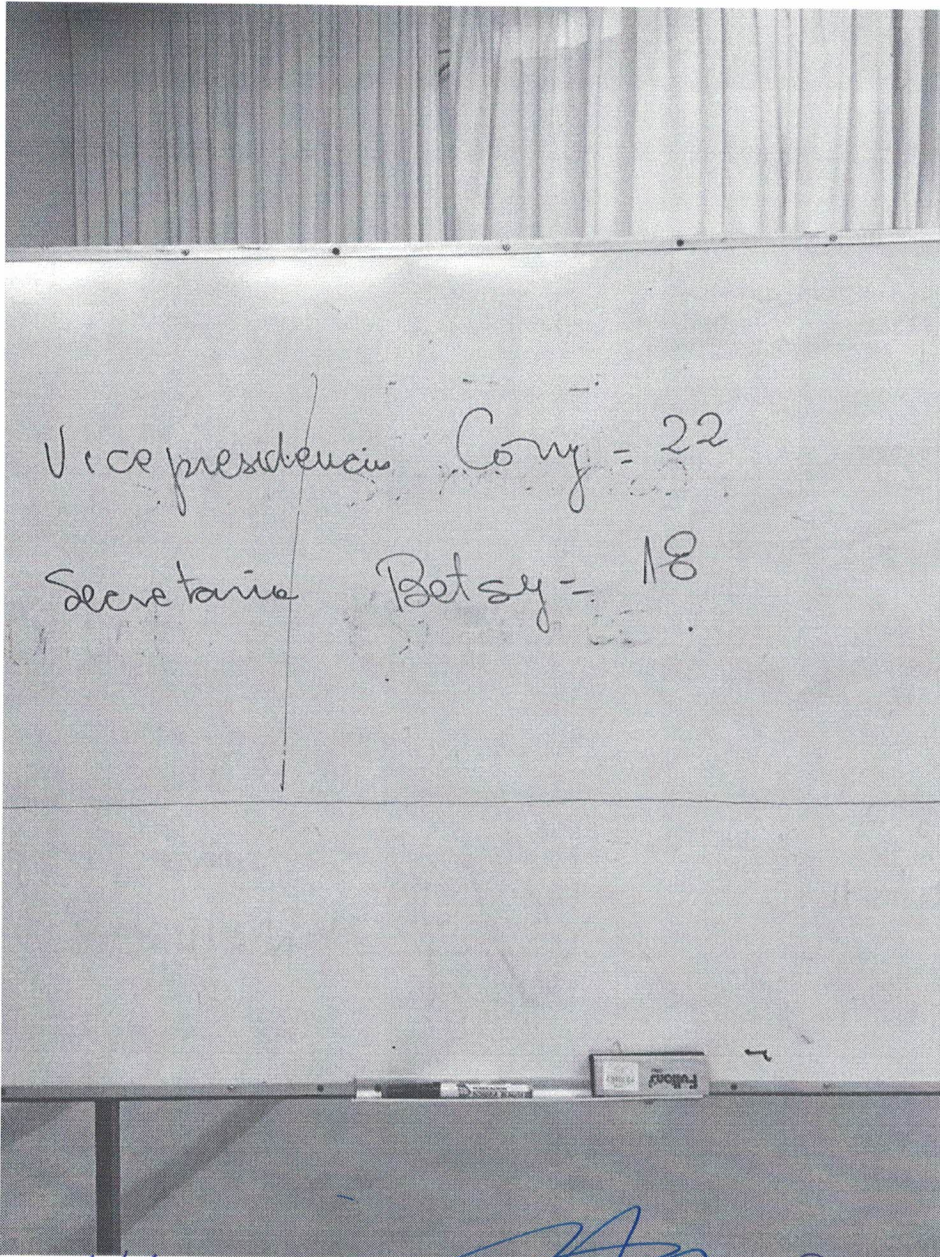 Vicepresidencia Cony = 22
Secretaria Betsy = 18